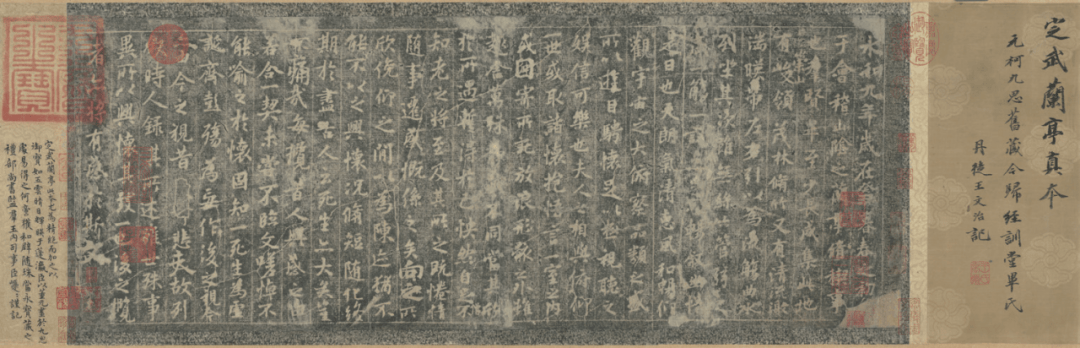 定武蘭亭真本
元柯九思舊藏今歸經訓堂畢氏
丹徒王文治記
永和九年歲在癸丑暮春之初
于會稽山陰之蘭亭脩稧事
也羣賢畢至少長咸集此地
有峻領茂林脩竹又有清流激
湍暎帶左右引以為流觴曲水
列坐其次雖無絲竹管弦之
盛一觴一詠亦足以暢敘幽情
是日也天朗氣清惠風和暢仰
觀宇宙之大俯察品類之盛
所以遊目騁懷足以極視聽之
娛信可樂也夫人之相與俯仰
一世或取諸懷抱悟言一室之內
或因寄所託放浪形骸之外雖
趣舍萬殊靜躁不同當其欣
於所遇蹔得於己怏然自足不
知老之將至及其所之既惓情
隨事遷感慨係之矣向之所
欣俛仰之間以為陳迹猶不
能不以之興懷況脩短隨化終
期於盡古人云死生亦大矣豈
不痛哉每攬昔人興感之由
若合一契未嘗不臨文嗟悼不
能喻之於懷固知一死生為虛
誕齊彭殤為妄作後之視今
亦由今之視昔悲夫故列
敘時人錄其所述雖世殊事
異所以興懷其致一也後之攬
者亦將有感於斯文
定武蘭亭此本尤為精絕而加之以
御寶如五雲晴日輝映於蓬瀛臣以董元畫於九思
處易得之何啻獲和璧隨珠當永寶藏之
禮部尚書監羣玉內司事臣巎巎謹記